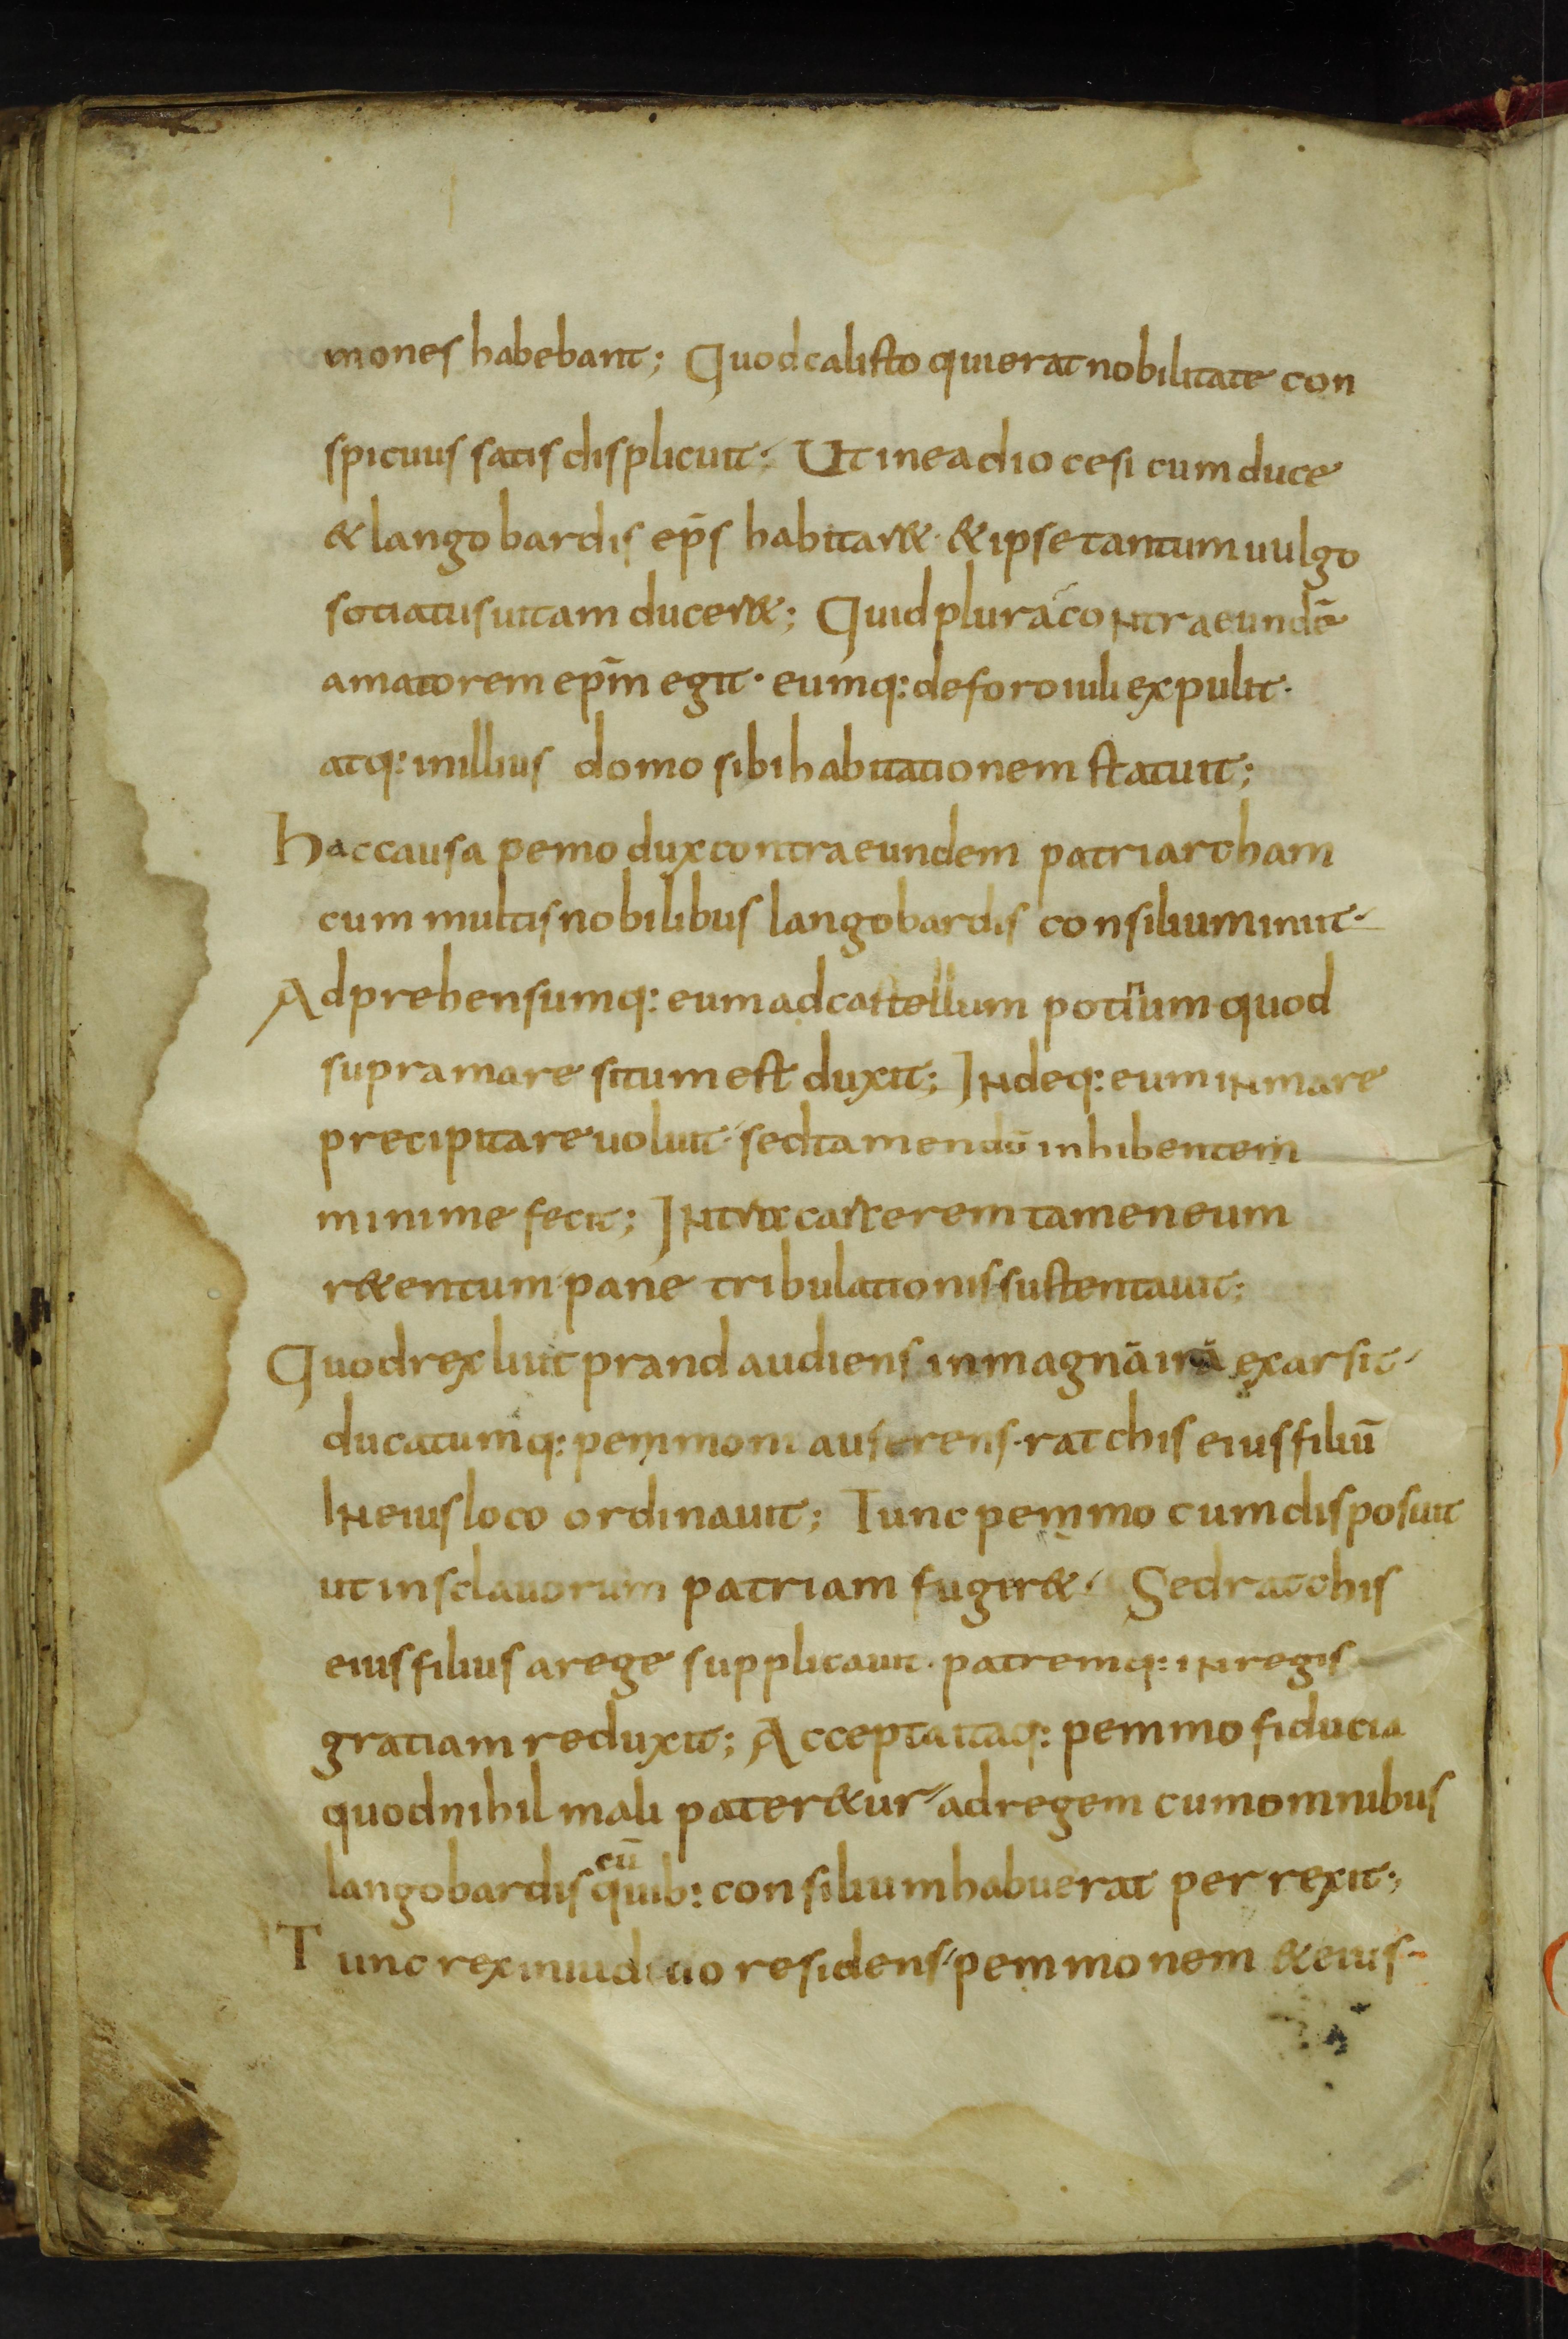 mones habebant; Quod calisto qui erat nobilitate con
spicuus satis displicuit; Ut in ea diocesi cum duce
& langobardis ep̄s habitar&· & ipse tantum uulgo
sotiatus uitam ducer&; Quid plura contra eundē
amatorem ep̄m egit· eumq: de foroiuli expulit·
atq: in illius domo sibi habitationem statuit;
Hac causa pemo dux contra eundem patriarcham
cum multis nobilibus langobardis consilium iniit·
Adprehensumq: eum ad castellum potium quod
supra mare situm est duxit; Indeq: eum in mare
precipitare uoluit· sed tamen dō inhibentem
minime fecit; Intra carcerem tamen eum
r&entum pane tribulationis sustentauit;
Quod rex liutprand audiens in magnā irā exarsit·
ducatumq: pemmoni auferens· ratchis eius filiū
In eius loco ordinauit; Tunc pemmo cum disposuit
ut in sclauorum patriam fuger&· Sed ratchis
eius filius a rege supplicauit· patremq: in regis
gratiam reduxit; Accepta itaq: pemmo fiducia
quod nihil mali pater&ur· ad regem cum omnibus
cū
langobardis quib: consilium habuerat perrexit;
Tunc rex in iudicio residens· pemmonem & eius·